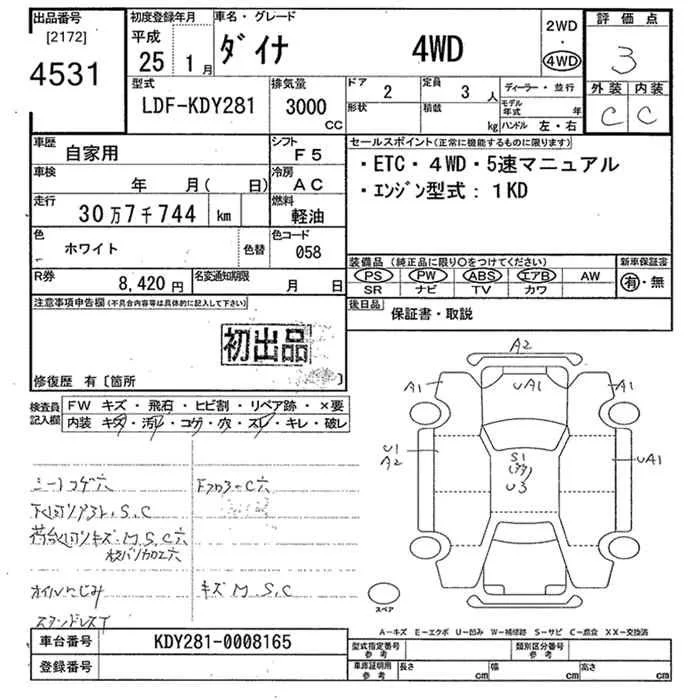 出品番号
[2172]
4531
初度登録年月
平成
25 1月
車名・グレード
ダイナ 4WD
2WD
・
4WD
評価点
3
外装 内装
C C
型式
LDF-KDY281
排気量
3000
CC
ドア
2
形状
定員
3人
積載
kg
ディーラー・並行
モデル
年式 年
ハンドル 左・右
車歴
自家用
シフト
F5
車検
年 月( 日)
冷房
AC
走行
30万7千744 km
燃料
軽油
色
ホワイト
色替
色コード
058
R券
8,420円
名変通知期限
月 日
セールスポイント(正常に機能するものに限ります)
・ETC・4WD・5速マニュアル
・エンジン型式:1KD
装備品(純正品に限り○をつけてください)
PS PW ABS エアB AW
SR ナビ TV カワ
新車保証書
有・無
後日品
保証書・取説
注意事項申告欄(不具合内容等は具体的に記入して下さい)
初出品
修復歴 有〔箇所 〕
検査員
記入欄
FW キズ・飛石・ヒビ割・リペア跡・×要
内装 キズ・汚レ・コゲ・穴・スレ・キレ・破レ
シートコゲ穴
下廻りサビ、S.C
オイルにじみ
キズ M.S.C
A2
A1
UA1
A1
U1
A2
S1
U3
UA1
スペア
A-キズ E-エクボ U-凹み W-補修跡 S-サビ C-腐食 XX-交換済
車台番号
KDY281-0008165
登録番号
型式指定番号
参考
類別区分番号
参考
車庫証明用
参考
長さ cm
幅 cm
高さ cm